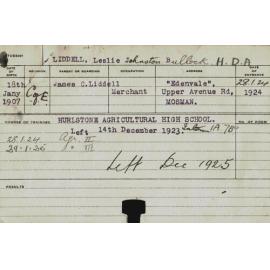 STUDENT
LIDDELL, Leslie Johnston Bullock. H.D.A
DATE OF BIRTH RELIGION PARENT OR GUARDIAN OCCUPATION ADDRESS
18th James C. Liddell "Edenvale", 28.1.24
Jany C of E Merchant Upper Avenue Rd, 1924
1907 MOSMAN.
HURLSTONE AGRICULTURAL HIGH SCHOOL.
COURSE OF TRAINING Left 14th December 1923.
28.1.24 Agr. II
29.1.25 " III
Left Dec 1925
RESULTS